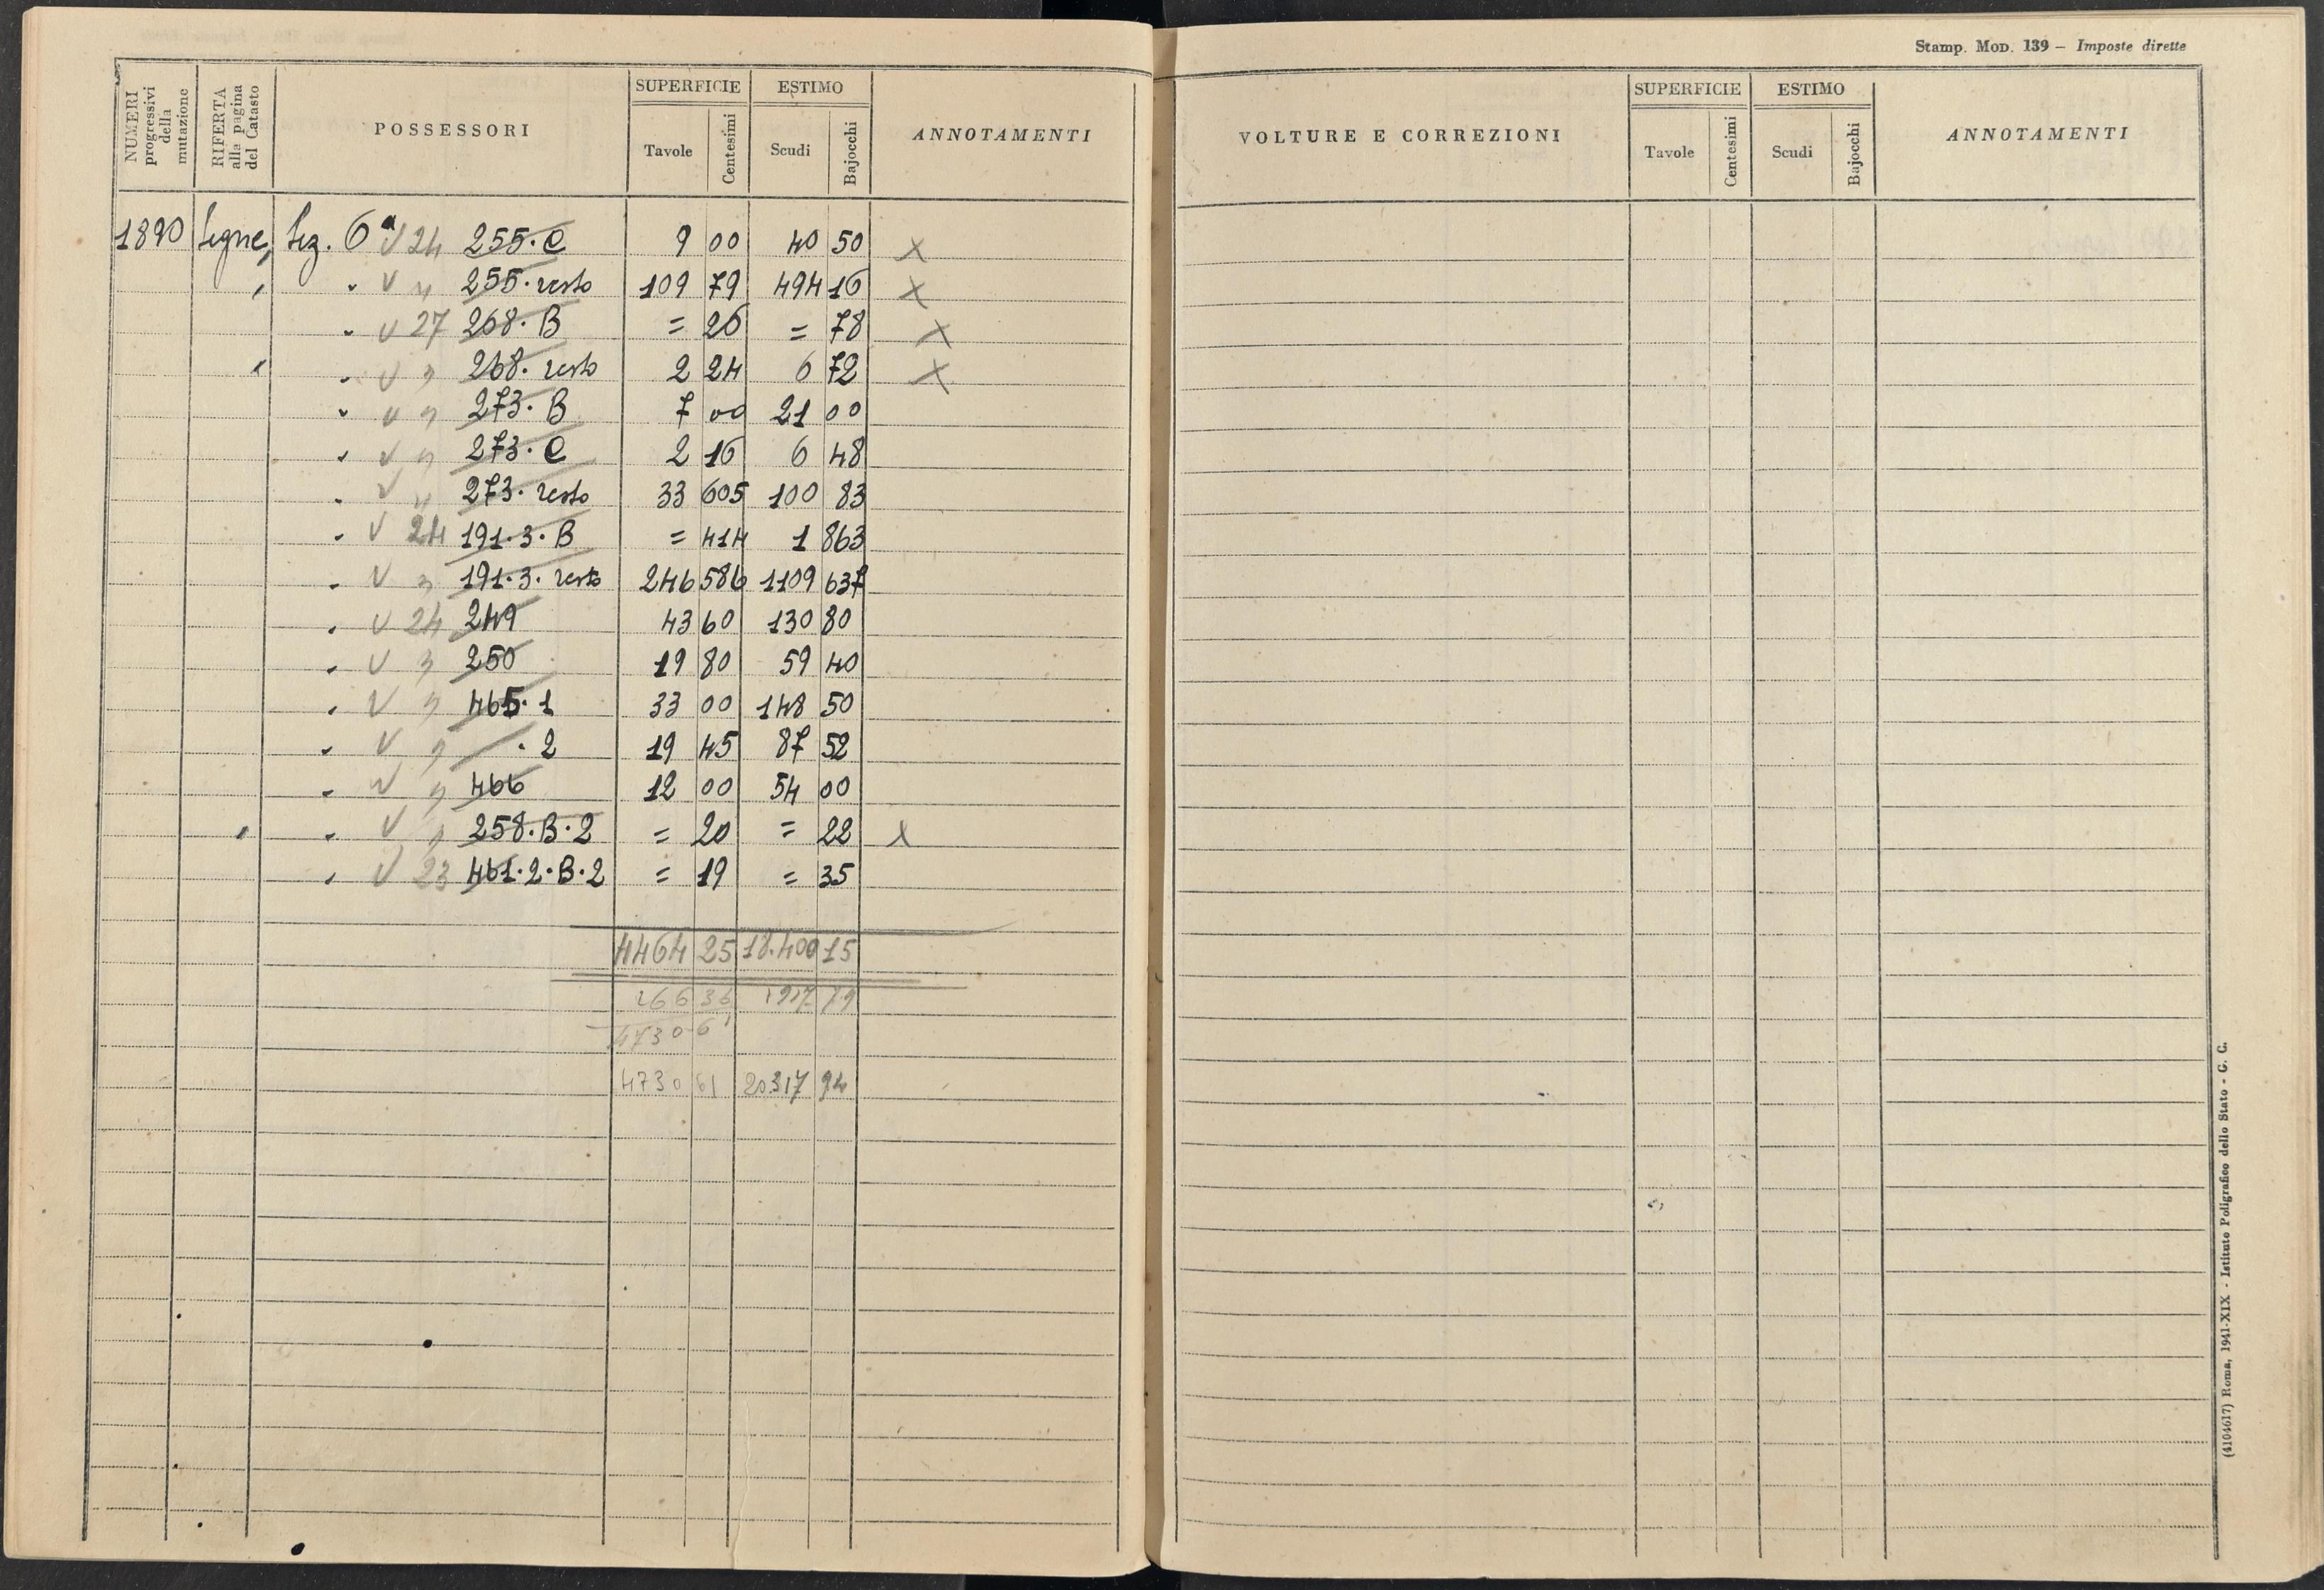 Stamp. Mod. 139 – Imposte dirette
NUMERI progressivi della mutazione | RIFERTA alla pagina del Catasto | POSSESSORI | SUPERFICIE Tavole Centesimi | ESTIMO Scudi Bajocchi | ANNOTAMENTI
1890 Segue, Sez. 6a V 24 255. C 9 00 40 50 X
" V " 255. resto 109 79 494 16 X
" V 27 268. B = 26 = 78 X
" V " 268. resto 2 24 6 72 X
" V " 273. B 7 00 21 00
" V " 273. C 2 16 6 48
" V " 273. resto 33 605 100 83
" V 24 191.3. B = 414 1 863
" V " 191.3. resto 246 586 1109 637
" V 24 249 43 60 130 80
" V " 250 19 80 59 40
" V " 465. 1 33 00 148 50
" V " . 2 19 45 87 52
" V " 466 12 00 54 00
" V " 258. B. 2 = 20 = 22 X
" V 23 461. 2. B. 2 = 19 = 35
4464 25 18.400 15
266 36 1917 79
4730 61
4730 61 20317 94
VOLTURE E CORREZIONI | SUPERFICIE Tavole Centesimi | ESTIMO Scudi Bajocchi | ANNOTAMENTI
(4104617) Roma, 1941-XIX - Istituto Poligrafico dello Stato - G. C.